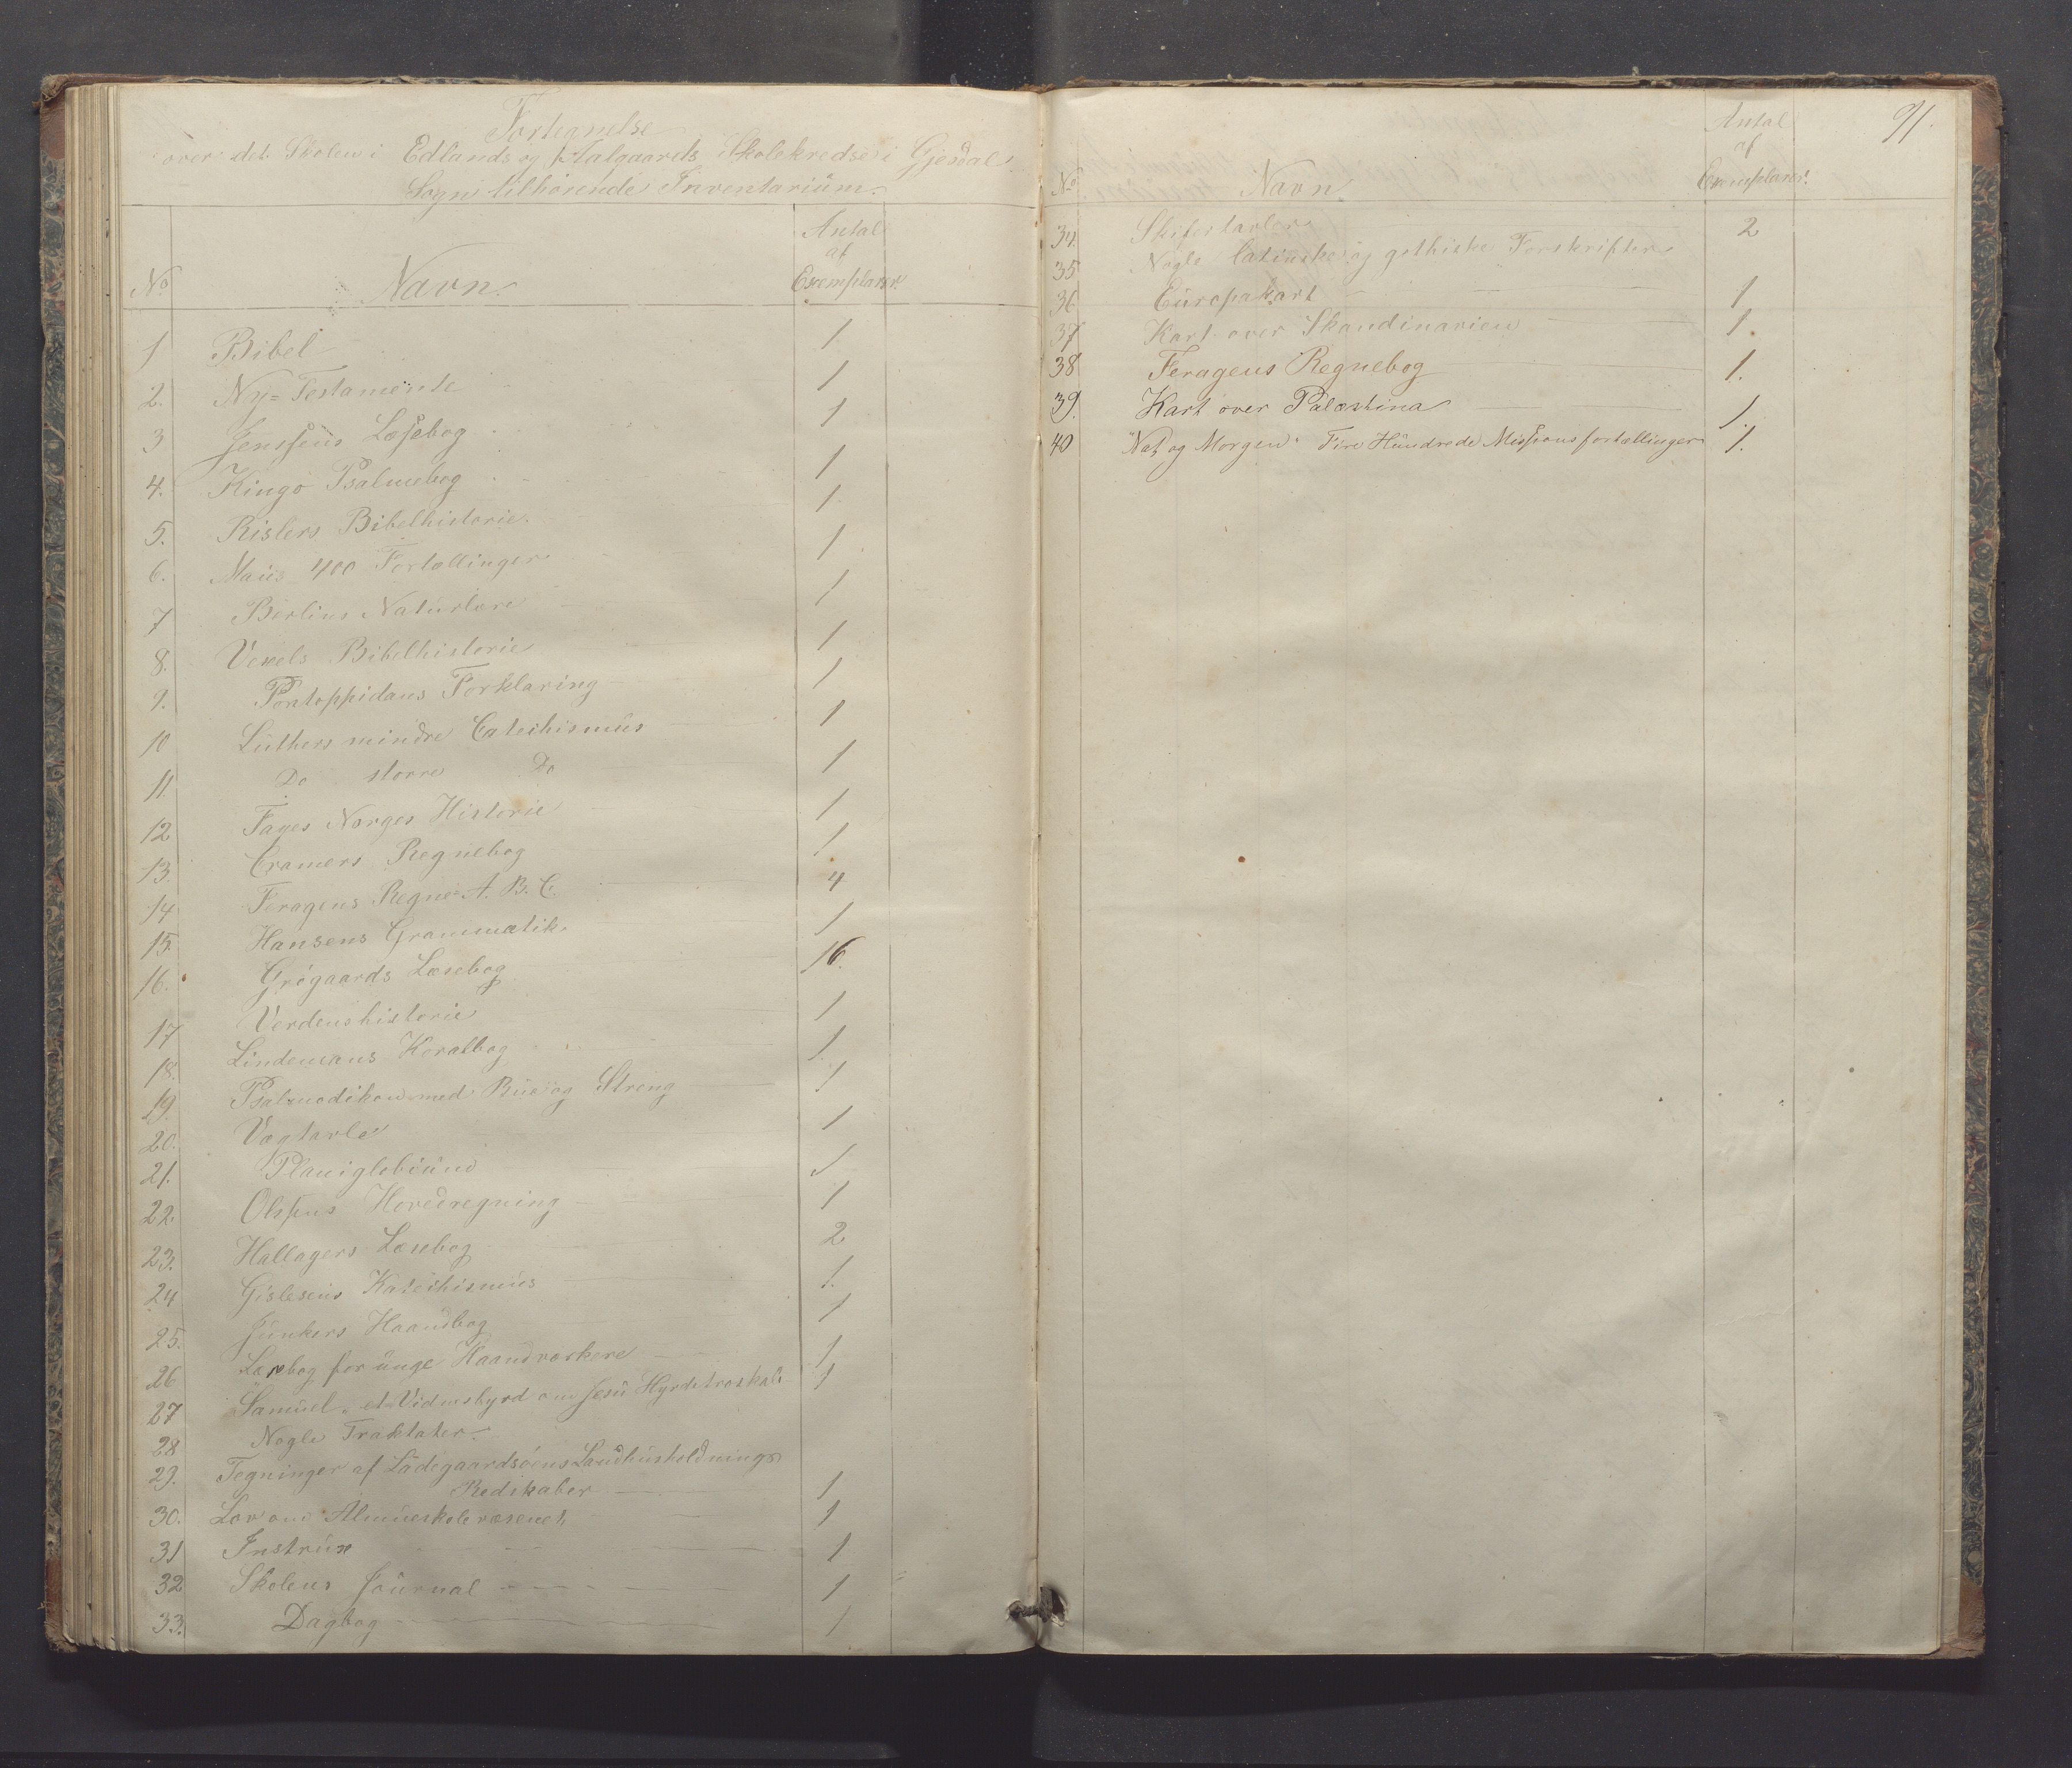 Fortegnelse
over det Skolen i Edlands og Aalgaards Skolekredse i Gjesdal
Sogn tilhørende Inventarium.
No Navn. Antal af Exemplarer
1 Bibel 1
2. Ny=Testamente 1
3 Jenssens Læsebog 1
4. Kingo Psalmebog 1
5. Rislers Bibelhistorie. 1
6. Maus 400 Fortællinger 1
7 Berlins Naturlære 1
8. Vexels Bibelhistorie 1
9. Pontoppidans Forklaring 1
10 Luthers mindre Catechismus 1
11. Do større Do 1
12 Fayes Norges Historie 1
13. Cramers Regnebog 1
14 Feragens Regne-A. B. C. 4
15. Hansens Grammatik 1
16. Grøgaards Læsebog 16.
17 Verdenshistorie 1
18. Lindemans Koralbog 1.
19. Psalmodikon med Bue og Streng 1
20. Vægtavle 1
21. Planiglobium 1
22. Olssens Hovedregning 1
23. Hallagers Læsebog 2
24 Gislesens Katechismus 1.
25. Junkers Haandbog 1
26 Læsebog for unge Haandværkere 1
27 Samuel, et Vidnesbyrd om Jesu Hyrdetroskab 1
28 Nogle Traktater.
29. Tegninger af Ladegaardsøens Landhusholdnings
Redskaber 1
30. Lov om Almueskolevæsenet 1
31 Instrux 1
32 Skolens Journal 1
33. Dagbog 1
91.
No Navn. Antal af Exemplarer.
34. Skifertavler 2
35 Nogle latinske og gothiske Forskrifter
36 Europakart 1
37 Kart over Skandinavien 1.
38 Feragens Regnebog 1.
39. Kart over Palæstina 1.
40 "Nat og Morgen" Fire Hundrede Missionsfortællinger 1.